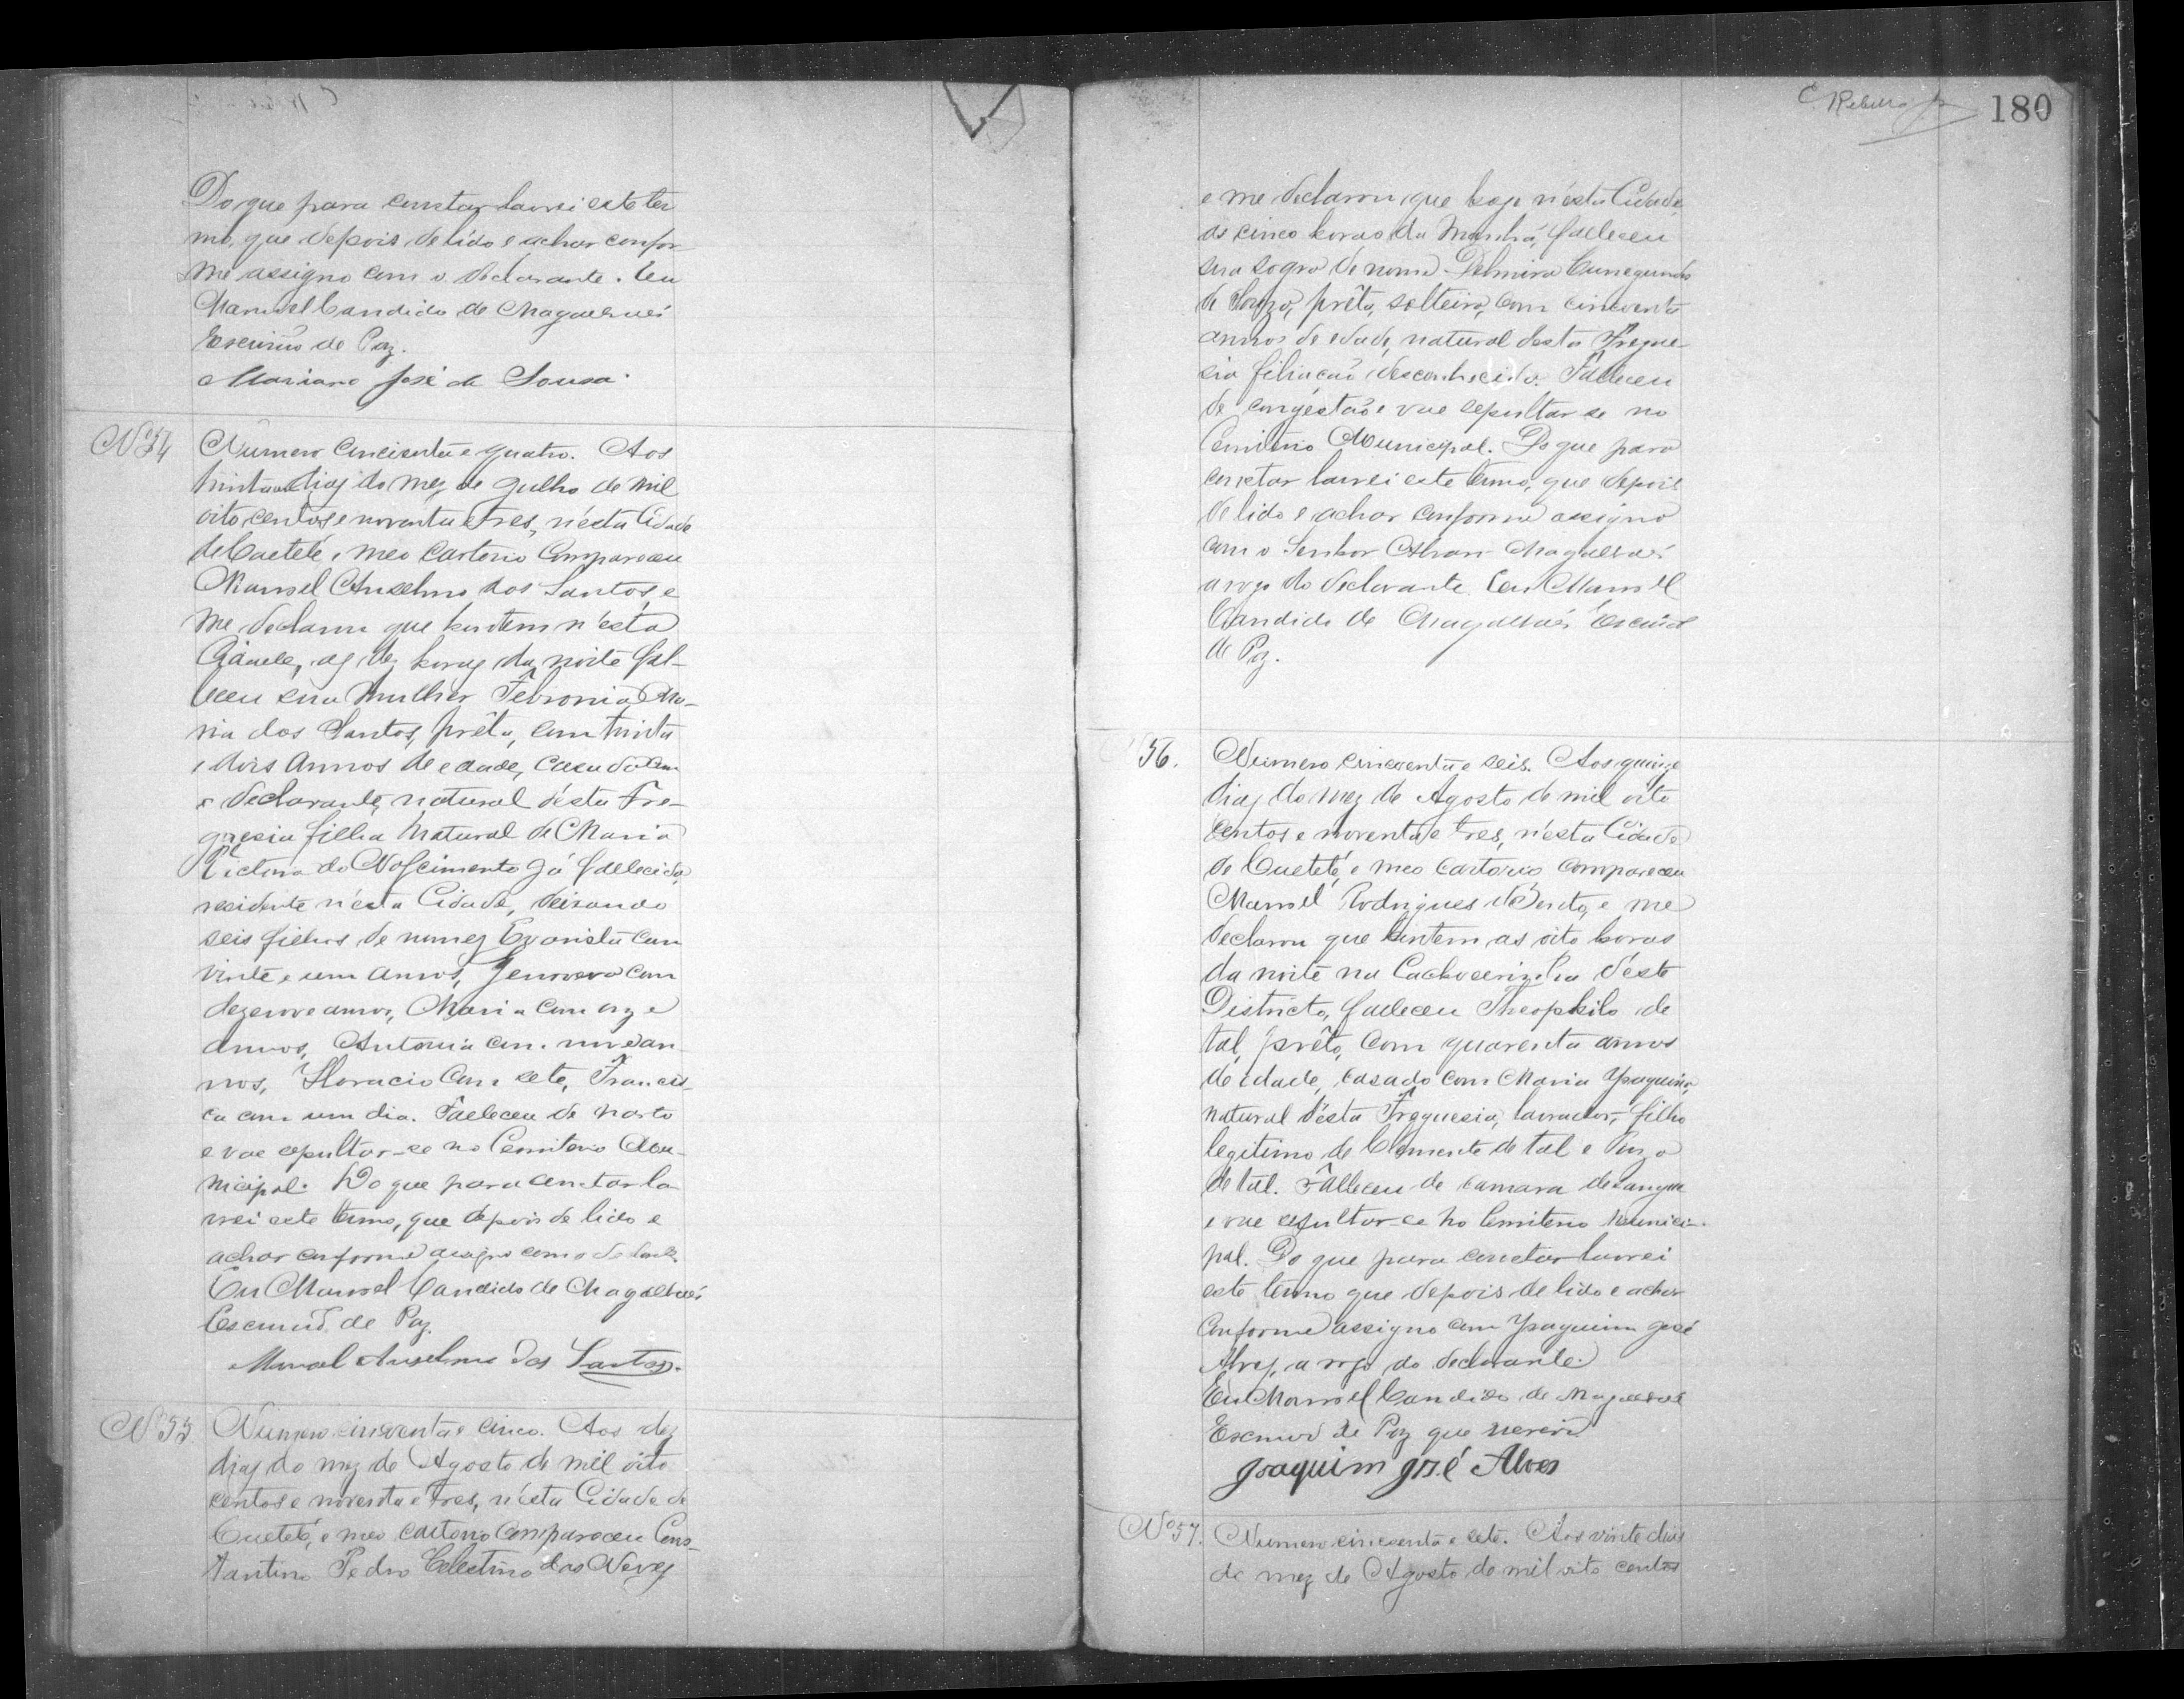 Do que para constar lavrei este ter
mo, que depois de lido e achar confor
me assigno com o declarante. Eu
Manoel Candido de Magalhães
Escrivão de Paz.
Mariano José de Sousa
Nº 54
Numero cincoenta e quatro. Aos
trinta dias do mez de Julho de mil
oito centos e noventa e tres, n'esta Cidade
de Caeteté, e meo Cartorio compareceu
Manoel Anselmo dos Santos, e
me declarou que hontem n'esta
Cidade, as dez horas da noite fal-
leceu sua mulher Febronia Ma-
ria dos Santos, prêta, com trinta
e dois annos de edade, casada com
o declarante, natural désta Fre-
guesia filha natural de Maria
Victoria do Nascimento já fallecida,
residente n'esta Cidade, deixando
seis filhos de nomes Evarista com
vinte e um annos, Jenoveva com
dezenove annos, Maria com onze
annos, Antonia com nove an-
nos, Horacio com sete, Francis-
ca com um dia. Falleceu de parto
e vae sepultar-se no Cemiterio Mu-
nicipal. Do que para constar la
vrei este termo, que depois de lido e
achar conforme assigno com o declarante.
Eu Manoel Candido de Magalhães
Escrivão de Paz.
Manoel Anselmo dos Santos.
Nº 55
Numero cincoenta e cinco. Aos dez
dias do mez de Agosto de mil oito
centos e noventa e tres, n'esta Cidade de
Caeteté, e meo cartorio compareceu Cons-
tantino Pedro Celestino das Neves
180
e me declarou que hoje n'esta Cidade,
as cinco horas da manhã, falleceu
sua sogra de nome Delmira Cunegundes
de Souza, prêta, solteira, com cincoenta
annos de edade, natural desta Fregue
sia filiação desconhecida. Falleceu
de congestão e vae sepultar se no
Cemiterio Municipal. Do que para
constar lavrei este termo, que depois
de lido e achar conforme assigno
com o Senhor Magalhães
a rogo do declarante. Eu Manoel
Candido de Magalhães Escrivão
de Paz.
56.
Numero cincoenta e seis. Aos quinze
dias do mez de Agosto de mil oito
centos e noventa e tres, n'esta Cidade
de Caeteté, e meo cartorio compareceu
Manoel Rodrigues de Brito, e me
declarou que hontem as oito horas
da noite na Cachoeirinha d'este
Districto, falleceu Theophilo de
tal, prêto, com quarenta annos
de idade, casado com Maria Joaquina,
natural désta Freguesia, lavrador, filho
legitimo de Clemente de tal e
de tal. Falleceu de camara de sangue
e vae sepultar-se no Cemiterio Munici-
pal. Do que para constar lavrei
este termo que depois de lido e achar
conforme assigno com Joaquim José
Alves, a rogo do declarante.
Eu Manoel Candido de Magalhães
Escrivão de Paz que escrevi
Joaquim José Alves
Nº 57.
Numero cincoenta e sete. Aos vinte dias
do mez de Agosto de mil oito centos